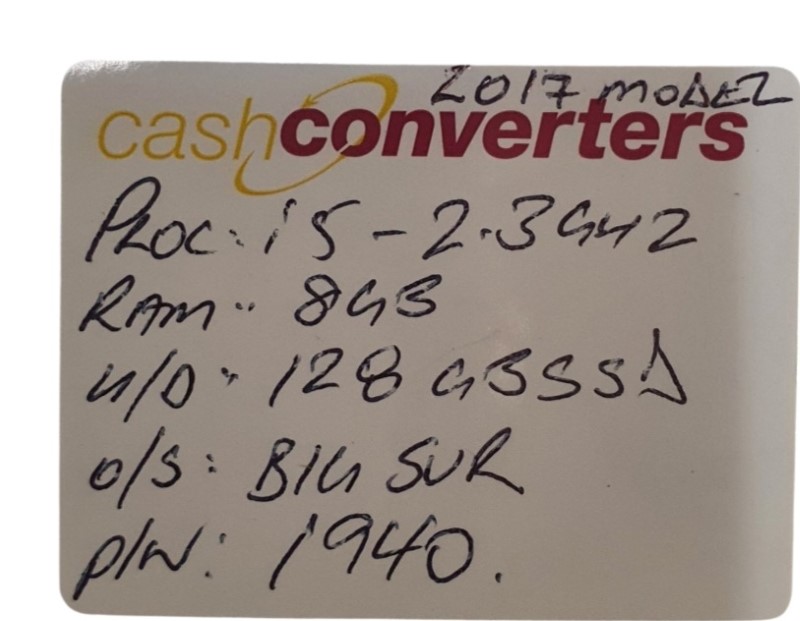 2017 MODEL
cashconverters
PROC: i5 - 2.3GHZ
RAM: 8GB
H/D: 128 GB SSD
O/S: BIG SUR
P/W: 1940.